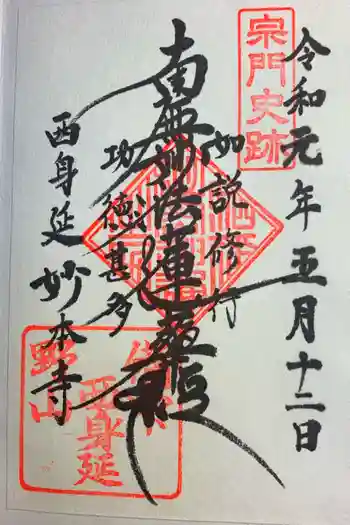 宗門史跡
令和元年五月十二日
如説修行
南無妙法蓮華経
功徳甚多
西身延
妙本寺
西身延